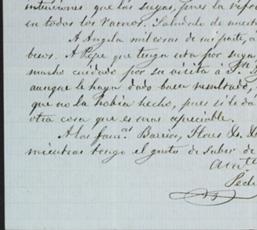 intenciones que las suyas, pues la refor
en todos los ramos. Saludalo de nuestr
A Angela mil cosas de mi parte, a
besos. A Pepe que tenga esta por suya
mucho cuidado por su visita a
aunque le haya dado buen resultado,
que no la habia hecho, pues si le da
otra cosa que es mas apreciable.
A las fam.as Barrios, Flores D. D.
mientras tengo el gusto de saber de
Am.te
Pedr